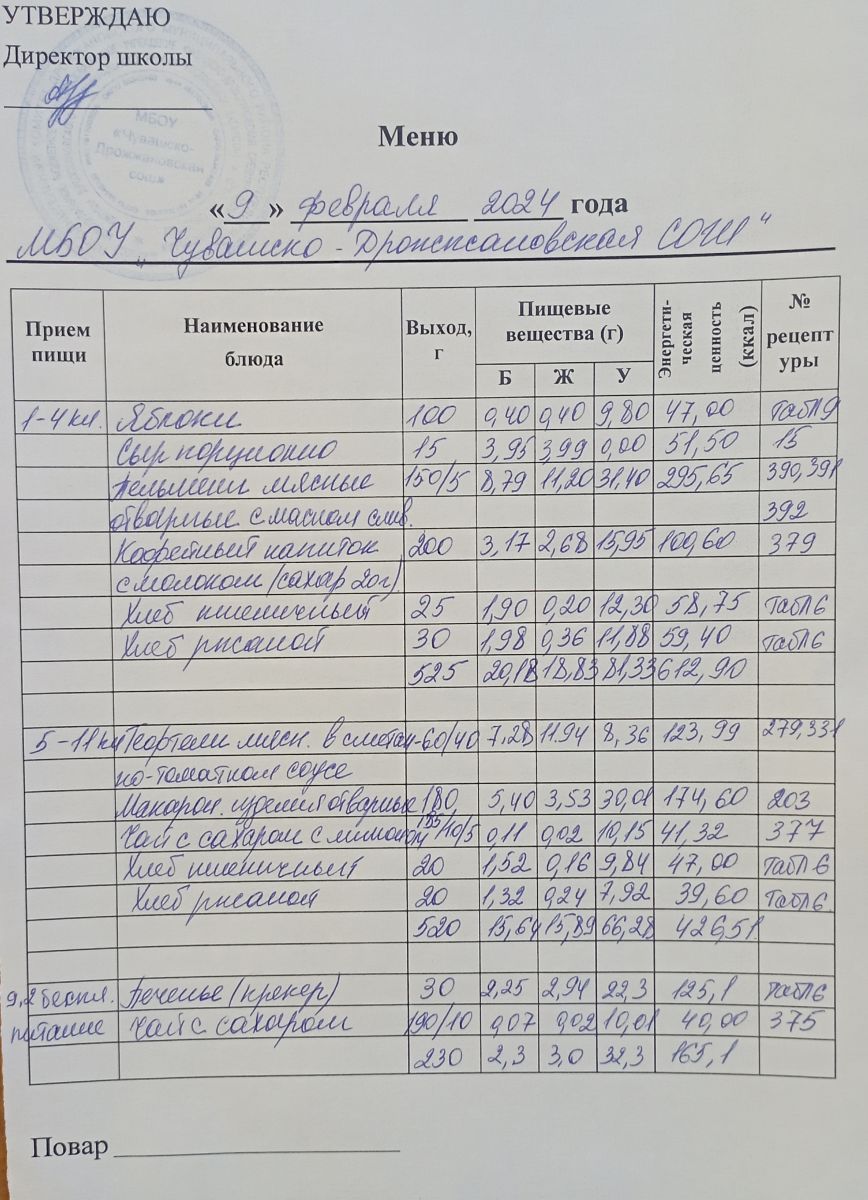 УТВЕРЖДАЮ
Директор школы
МБОУ
«Чувашско-
Дрожжановская
сош»
Меню
«9» февраля 2024 года
МБОУ „Чувашско - Дрожжановская СОШ"
Прием пищи Наименование блюда Выход, г Пищевые вещества (г) Энергети-ческая ценность (ккал) № рецептуры
Б Ж У
1-4 кл. Яблоки 100 0,40 0,40 9,80 47,00 табл 9
Сыр порционно 15 3,95 3,99 0,00 51,50 15
Пельмени мясные 150/5 8,79 11,20 31,40 295,65 390,391
отварные с маслом слив. 392
Кофейный напиток 200 3,17 2,68 15,95 100,60 379
с молоком (сахар 20г)
Хлеб пшеничный 25 1,90 0,20 12,30 58,75 табл 6
Хлеб ржаной 30 1,98 0,36 11,88 59,40 табл 6
525 20,18 18,83 81,33 612,90
5-11 кл Тефтели мясн. в сметан- 60/40 7,28 11.94 8,36 123,99 279,331
но-томатном соусе
Макарон. изделия отварные 180 5,40 3,53 30,01 174,60 203
Чай с сахаром с лимоном 185/10/5 0,11 0,02 10,15 41,32 377
Хлеб пшеничный 20 1,52 0,16 9,84 47,00 табл 6
Хлеб ржаной 20 1,32 0,24 7,92 39,60 табл 6.
520 15,64 15,89 66,28 426,51.
беспл. Печенье (крекер) 30 2,25 2,94 22,3 125,1 табл 6
питание Чай с сахаром 190/10 0,07 0,02 10,01 40,00 375
230 2,3 3,0 32,3 165,1
Повар